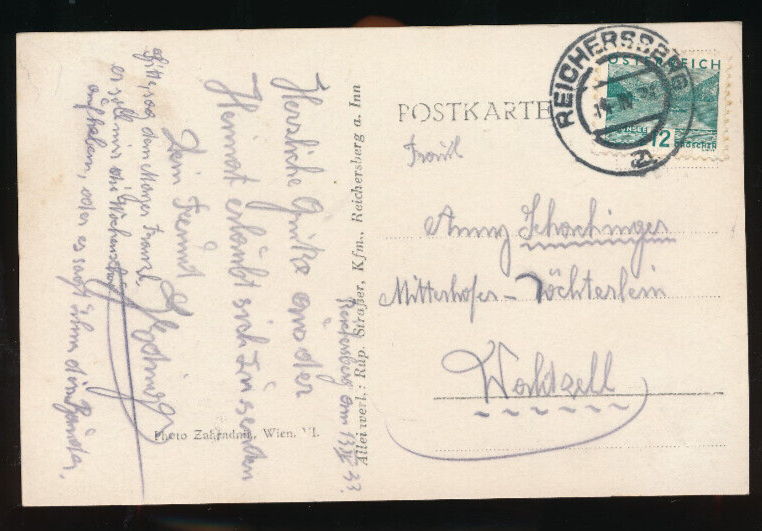 POSTKARTE
REICHERSBERG
ÖSTERREICH
12
GROSCHEN
Fräul
Anny Schachinger
Mitterhofer-Töchterlein
Waldzell
Alleinverl.: Rup. Straßer, Kfm., Reichersberg a. Inn
Photo Zahradnik, Wien, VI.
Reichersberg am 13. IV. 33.
Herzliche Grüße aus der
Heimat erlaubt sich zu senden
Dein Freund
Bitte, sag dem Franzl,
er soll mir die
aufheben, oder es sagt ihm dein Bruder,